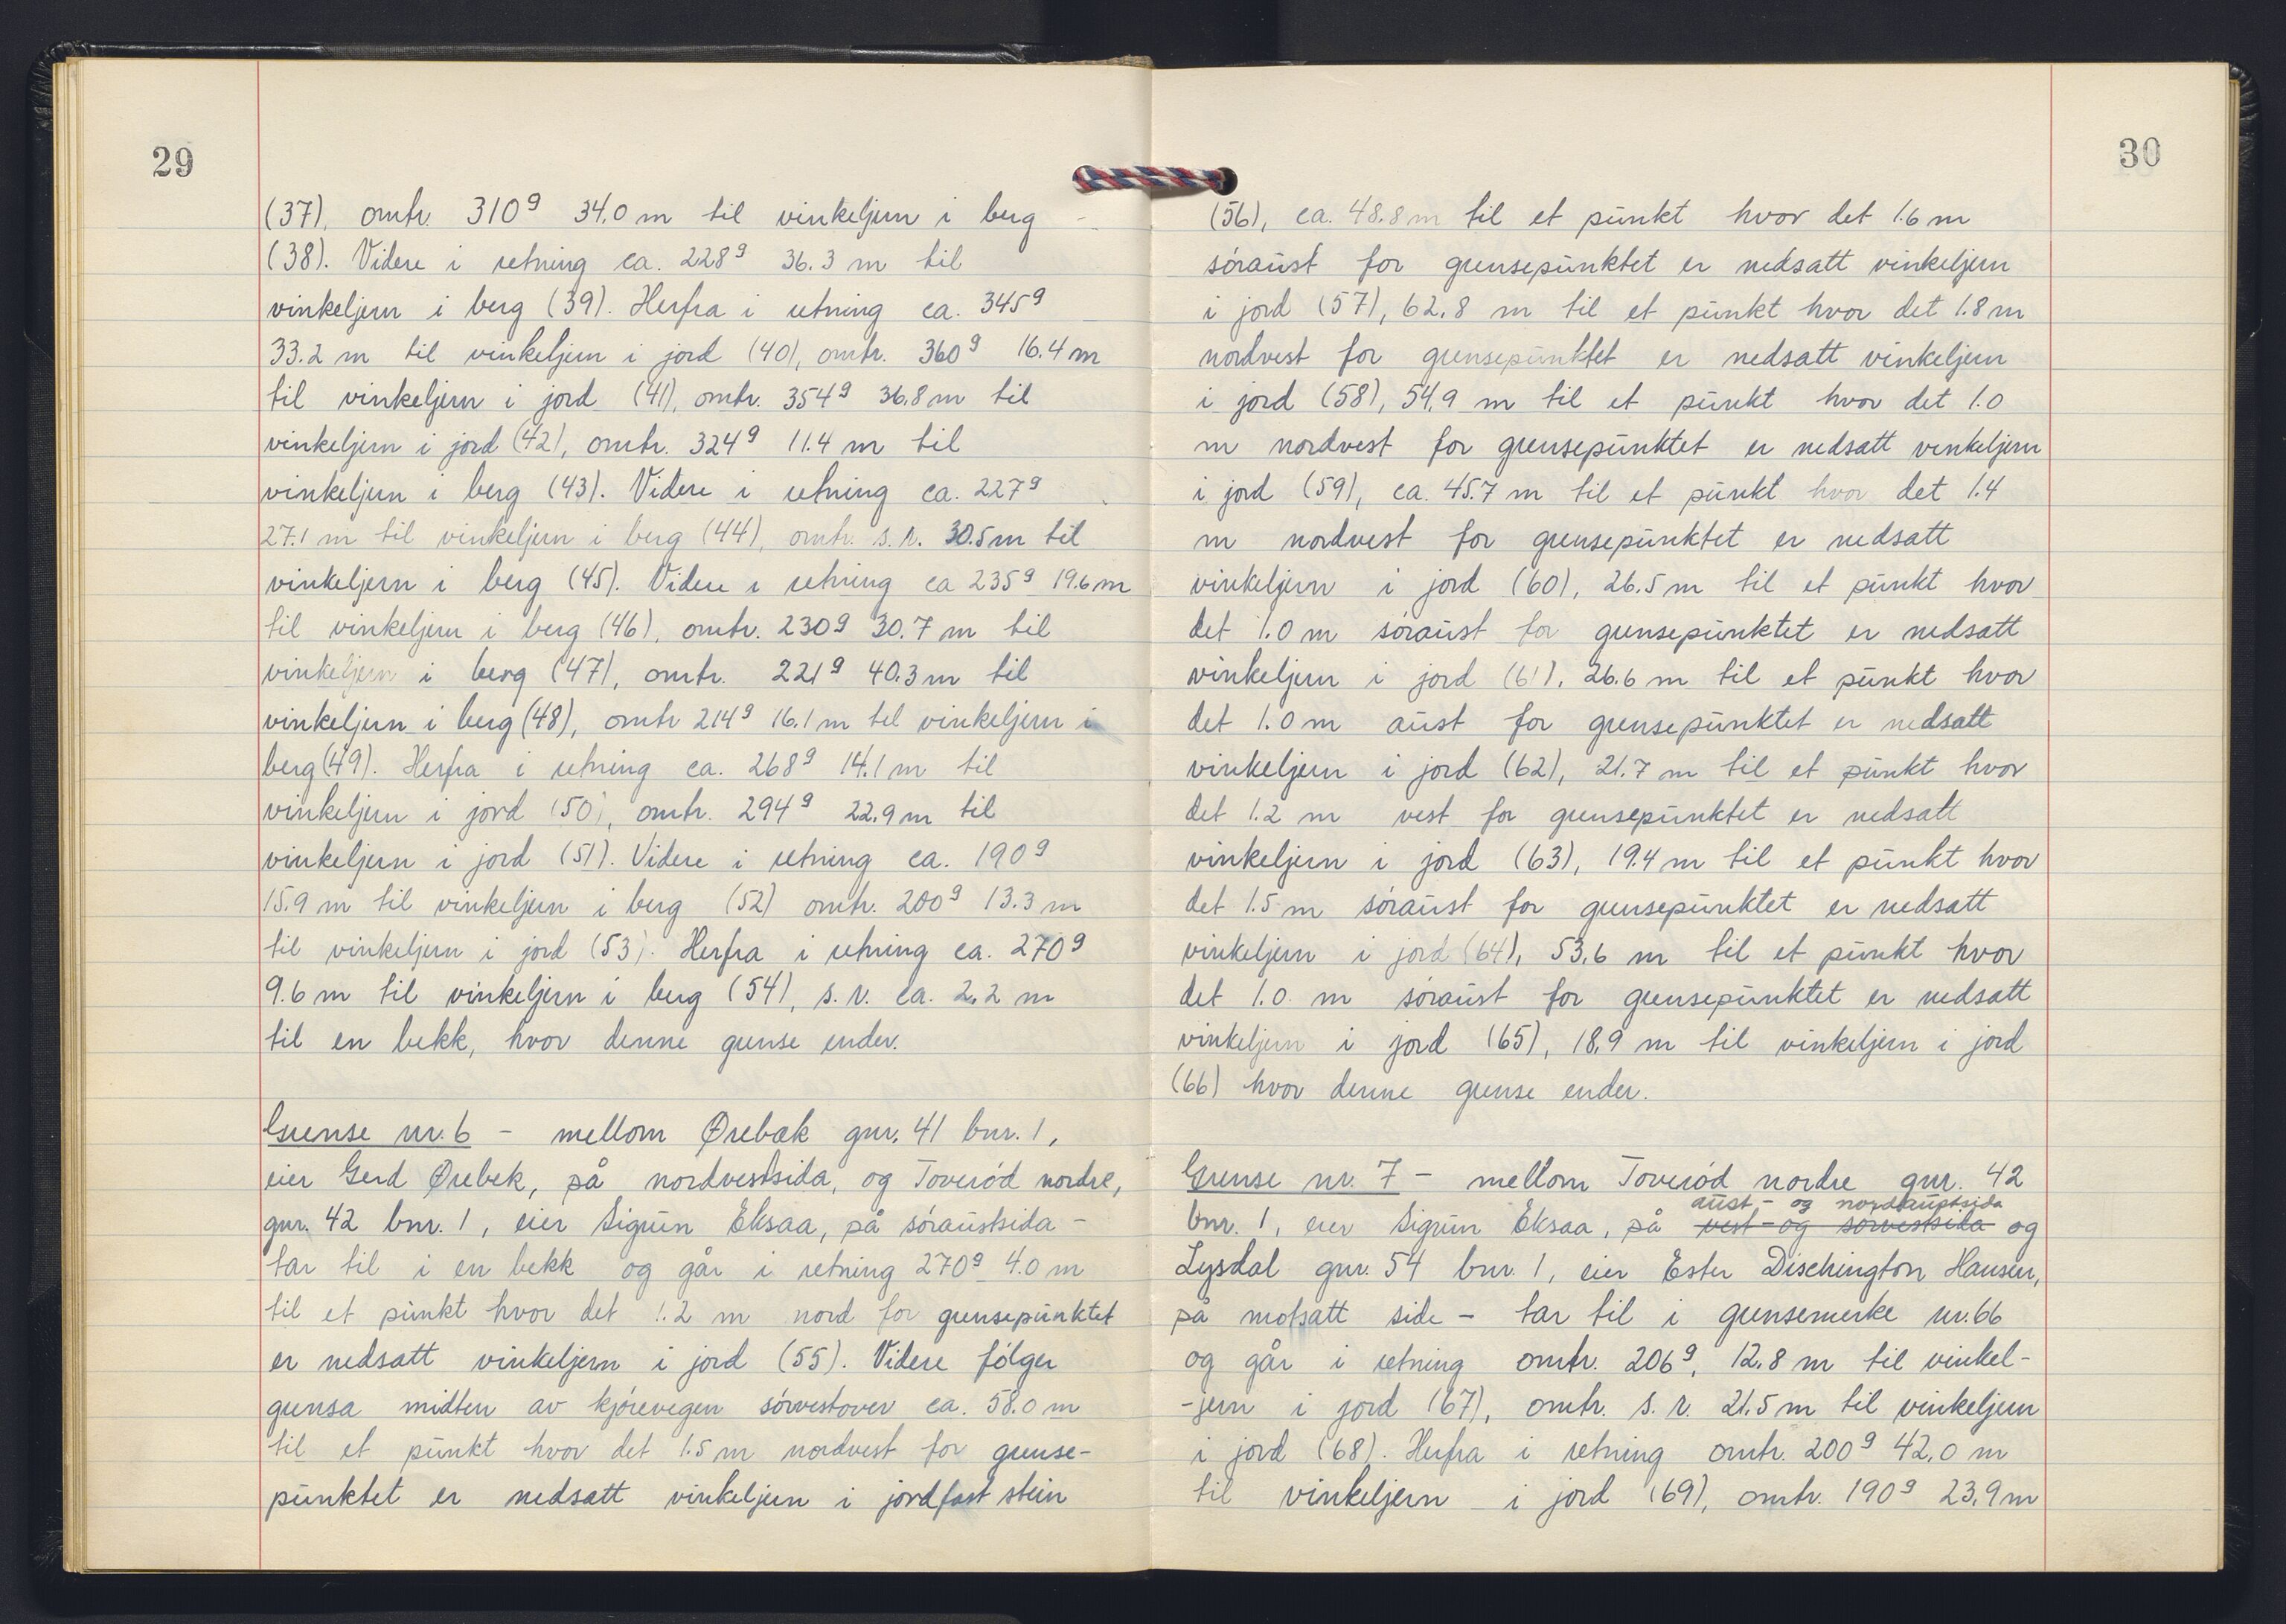 29
(37), omtr. 310g 34.0 m til vinkeljern i berg
(38). Videre i retning ca. 228g 36.3 m til
vinkeljern i berg (39). Herfra i retning ca. 345g
33.2 m til vinkeljern i jord (40), omtr. 360g 16.4 m
til vinkeljern i jord (41), omtr. 354g 36.8 m til
vinkeljern i jord (42), omtr. 324g 11.4 m til
vinkeljern i berg (43). Videre i retning ca. 227g
27.1 m til vinkeljern i berg (44), omtr. s.r. 30.5 m til
vinkeljern i berg (45). Videre i retning ca 235g 19.6 m
til vinkeljern i berg (46), omtr. 230g 30.7 m til
vinkeljern i berg (47), omtr. 221g 40.3 m til
vinkeljern i berg (48), omtr 214g 16.1 m til vinkeljern i
berg (49). Herfra i retning ca. 268g 14.1 m til
vinkeljern i jord (50), omtr. 294g 22.9 m til
vinkeljern i jord (51). Videre i retning ca. 190g
15.9 m til vinkeljern i berg (52) omtr. 200g 13.3 m
til vinkeljern i jord (53). Herfra i retning ca. 270g
9.6 m til vinkeljern i berg (54), s.r. ca. 2.2 m
til en bekk, hvor denne grense ender.
Grense nr. 6 - mellom Ørebæk gnr. 41 bnr. 1,
eier Gerd Ørebek, på nordvestsida, og Toverød nordre,
gnr. 42 bnr. 1, eier Sigrun Eksaa, på søraustsida -
tar til i en bekk og går i retning 270g 4.0 m
til et punkt hvor det 1.2 m nord for grensepunktet
er nedsatt vinkeljern i jord (55). Videre følger
grensa midten av kjørevegen sørvestover ca. 58.0 m
til et punkt hvor det 1.5 m nordvest for grense-
punktet er nedsatt vinkeljern i jordfast stein
30
(56), ca. 48.8 m til et punkt hvor det 1.6 m
søraust for grensepunktet er nedsatt vinkeljern
i jord (57), 62.8 m til et punkt hvor det 1.8 m
nordvest for grensepunktet er nedsatt vinkeljern
i jord (58), 54.9 m til et punkt hvor det 1.0
m nordvest for grensepunktet er nedsatt vinkeljern
i jord (59), ca. 45.7 m til et punkt hvor det 1.4
m nordvest for grensepunktet er nedsatt
vinkeljern i jord (60), 26.5 m til et punkt hvor
det 1.0 m søraust for grensepunktet er nedsatt
vinkeljern i jord (61), 26.6 m til et punkt hvor
det 1.0 m aust for grensepunktet er nedsatt
vinkeljern i jord (62), 21.7 m til et punkt hvor
det 1.2 m vest for grensepunktet er nedsatt
vinkeljern i jord (63), 19.4 m til et punkt hvor
det 1.5 m søraust for grensepunktet er nedsatt
vinkeljern i jord (64), 53.6 m til et punkt hvor
det 1.0 m søraust for grensepunktet er nedsatt
vinkeljern i jord (65), 18.9 m til vinkeljern i jord
(66) hvor denne grense ender.
Grense nr. 7 - mellom Toverød nordre gnr. 42
aust- og nordaustsida
bnr. 1, eier Sigrun Eksaa, på vest- og sørvestsida og
Lysdal gnr. 54 bnr. 1, eier Ester Dischington Hansen,
på motsatt side - tar til i grensemerke nr. 66
og går i retning omtr. 206g, 12.8 m til vinkel-
-jern i jord (67), omtr. s.r. 21.5 m til vinkeljern
i jord (68). Herfra i retning omtr. 200g 42.0 m
til vinkeljern i jord (69), omtr. 190g 23.9 m